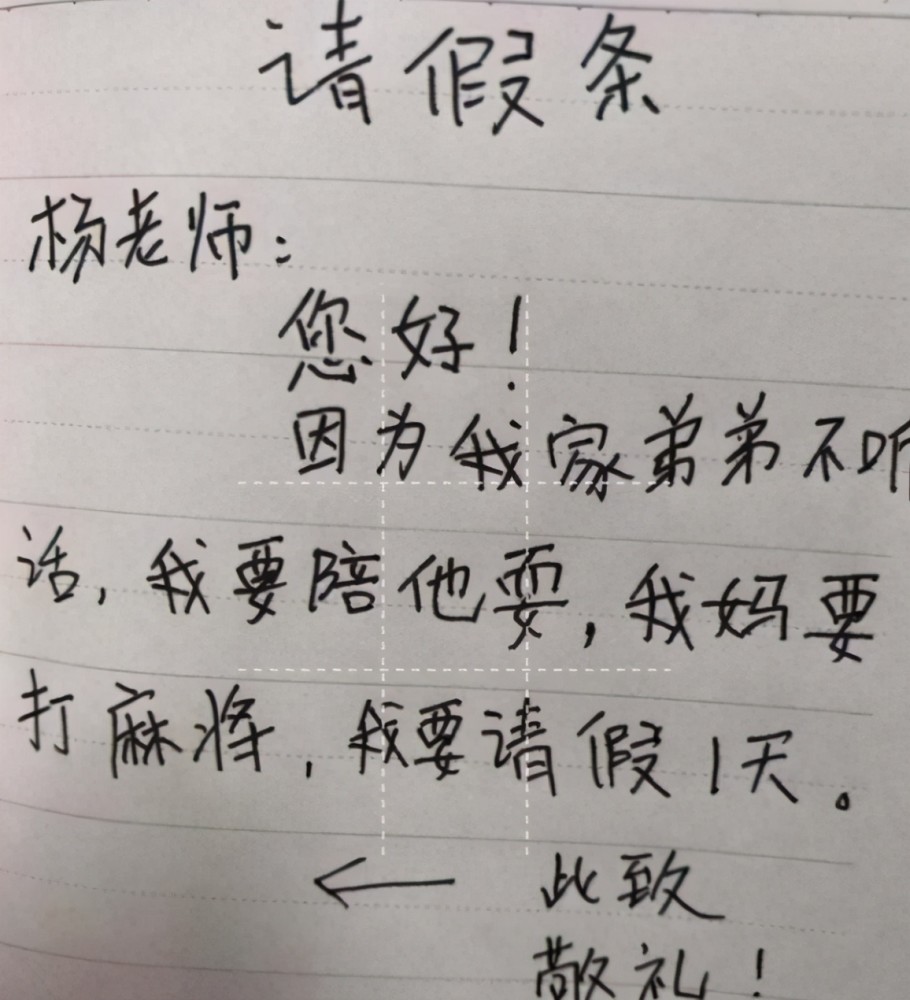 请假条
杨老师:
您好!
因为我家弟弟不听
话,我要陪他耍,我妈要
打麻将,我要请假1天。
← 此致
敬礼!